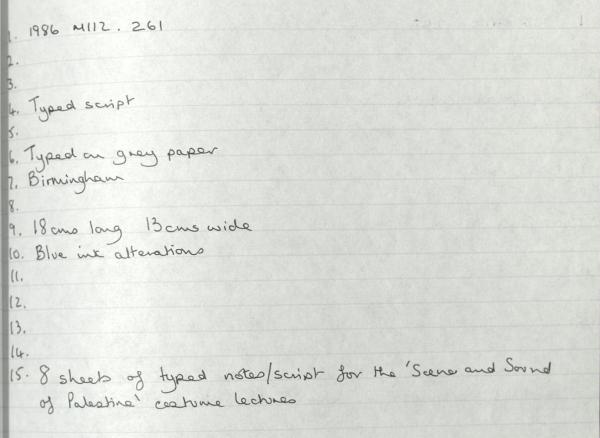 1. 1986 M112. 261
2.
3.
4. Typed script
5.
6. Typed on grey paper
7. Birmingham
8.
9. 18cms long 13cms wide
10. Blue ink alterations
11.
12.
13.
14.
15. 8 sheets of typed notes/script for the 'Scene and Sound
of Palestine' costume lectures